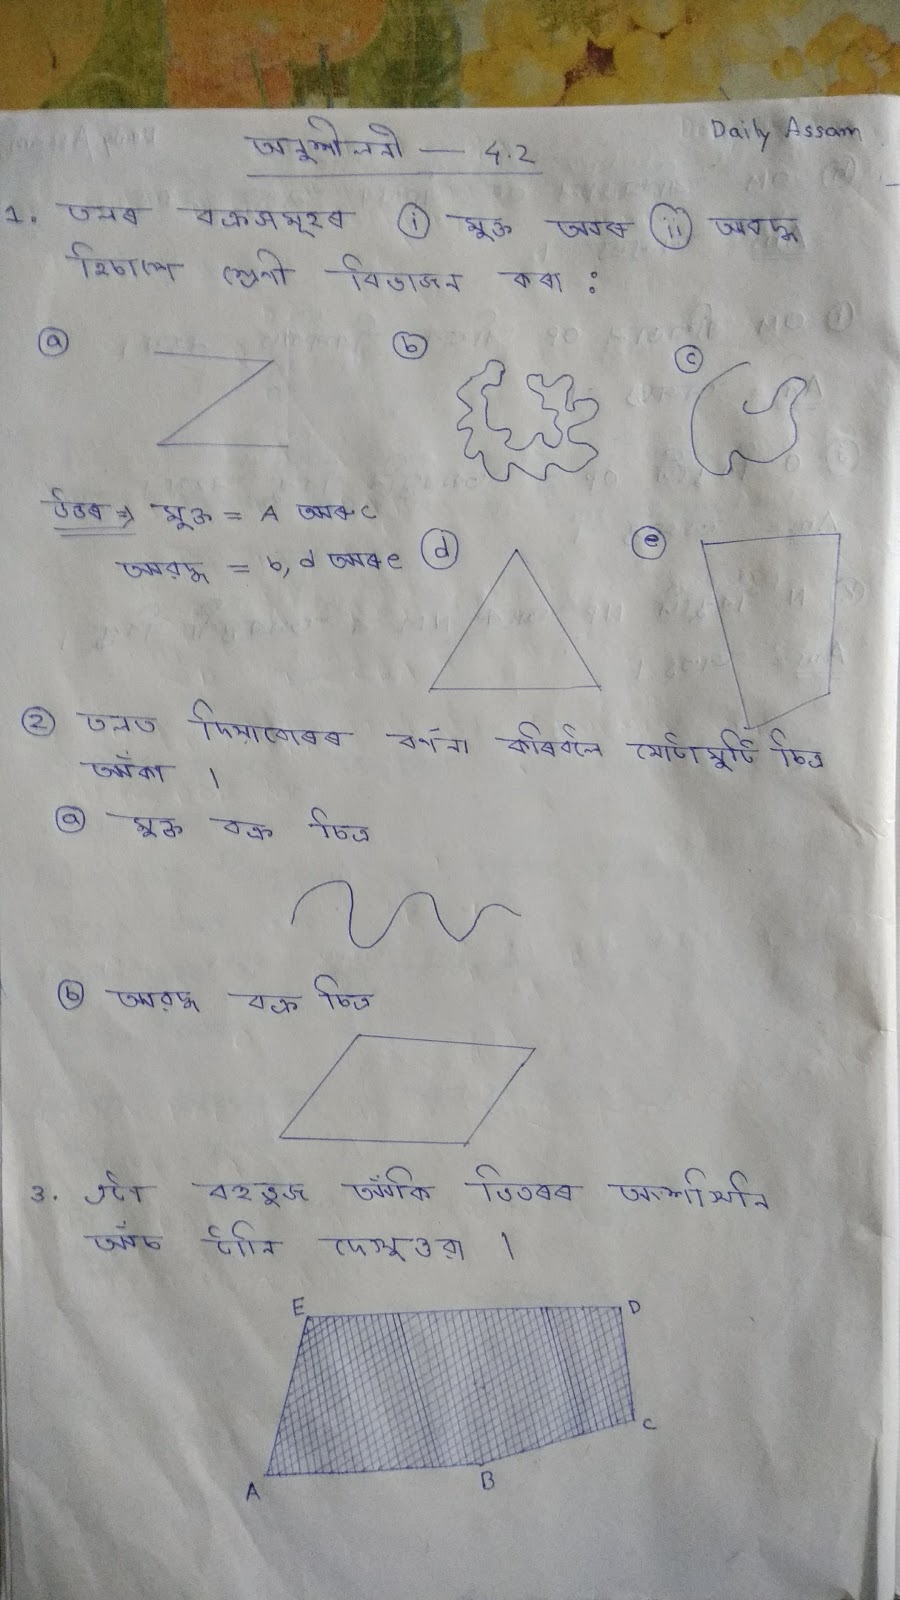 Daily Assam
অনুশীলনী — 4.2
1. তলৰ বক্ৰসমূহৰ (i) মুক্ত আৰু (ii) আবদ্ধ
হিচাপে শ্ৰেণী বিভাজন কৰা :
(a) (b) (c)
উত্তৰ ⇒ মুক্ত = A আৰু c
আবদ্ধ = b, d আৰু e (d) (e)
(2) তলত দিয়াবোৰৰ বৰ্ণনা কৰিবলৈ মোটামুটি চিত্ৰ
আঁকা ।
(a) মুক্ত বক্ৰ চিত্ৰ
(b) আবদ্ধ বক্ৰ চিত্ৰ
3. এটা বহুভুজ আঁকি ভিতৰৰ অংশখিনি
আঁচ টানি দেখুওৱা ।
E D
C
A B